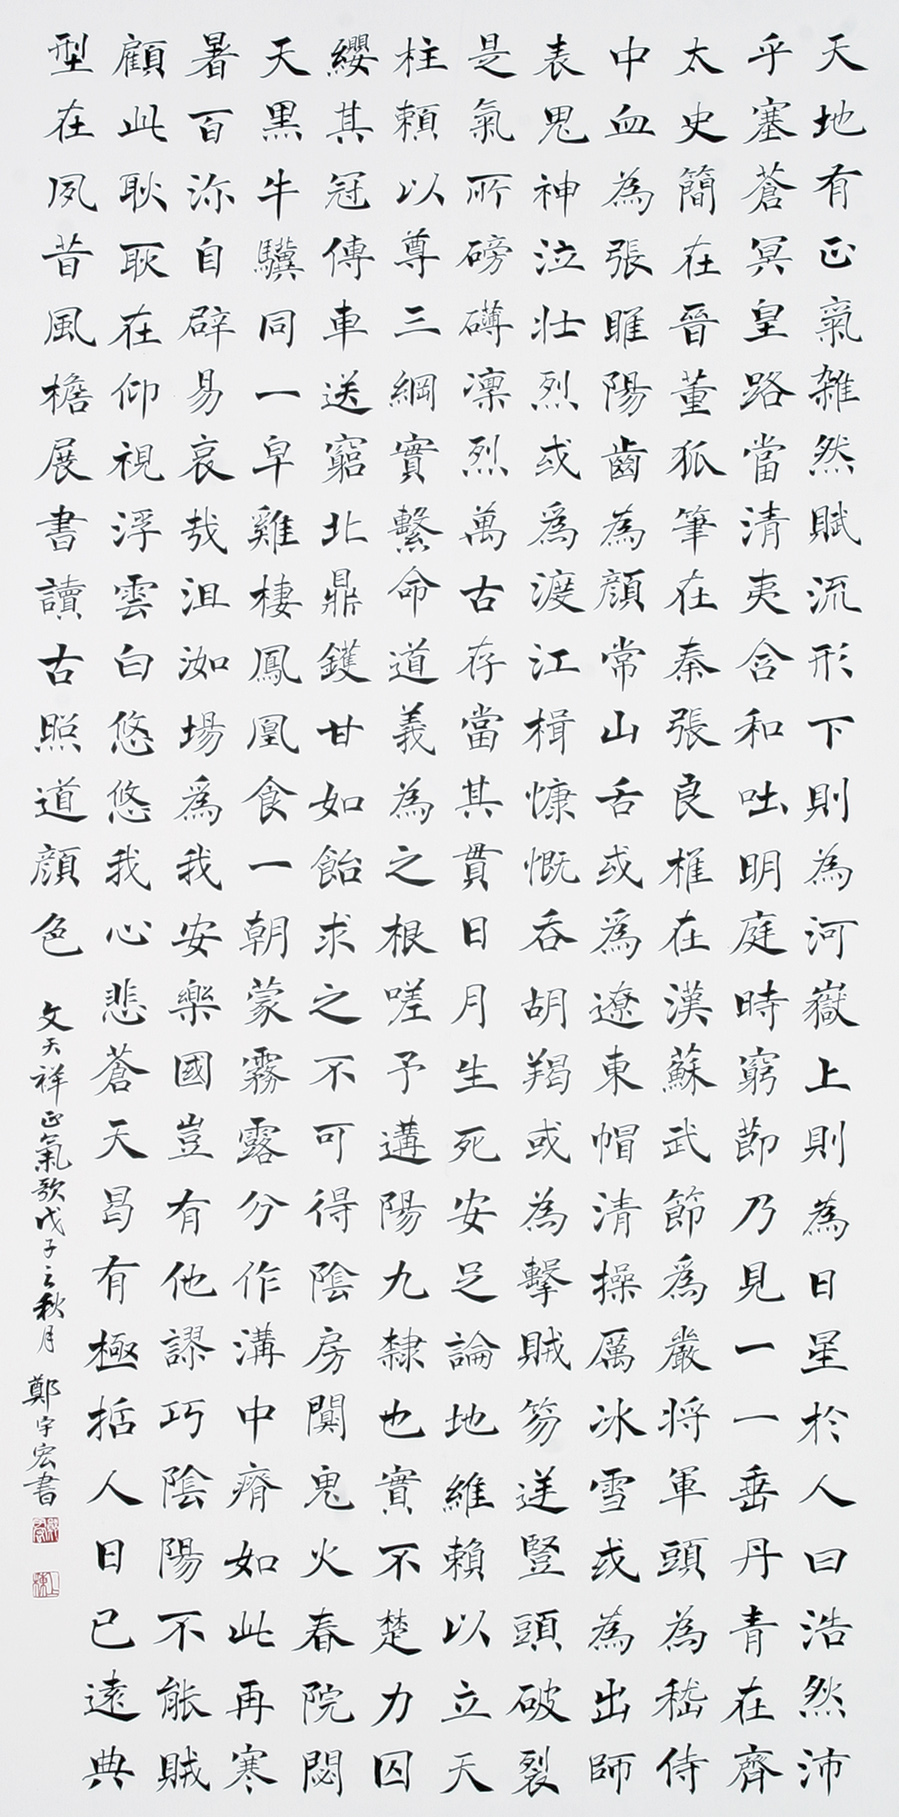 天地有正氣雜然賦流形下則為河嶽上則為日星於人曰浩然沛
乎塞蒼冥皇路當清夷含和吐明庭時窮節乃見一一垂丹青在齊
太史簡在晉董狐筆在秦張良椎在漢蘇武節為嚴將軍頭為嵇侍
中血為張睢陽齒為顏常山舌或為遼東帽清操厲冰雪或為出師
表鬼神泣壯烈或為渡江楫慷慨吞胡羯或為擊賊笏逆豎頭破裂
是氣所磅礴凜烈萬古存當其貫日月生死安足論地維賴以立天
柱賴以尊三綱實繫命道義為之根嗟予遘陽九隸也實不楚力囚
纓其冠傳車送窮北鼎鑊甘如飴求之不可得陰房闃鬼火春院閟
天黑牛驥同一皁雞棲鳳凰食一朝蒙霧露分作溝中瘠如此再寒
暑百沵自辟易哀哉沮洳場為我安樂國豈有他謬巧陰陽不能賊
顧此耿耿在仰視浮雲白悠悠我心悲蒼天曷有極括人日已遠典
型在夙昔風檐展書讀古照道顏色
文天祥正氣歌戊子之秋月 鄭宇宏書